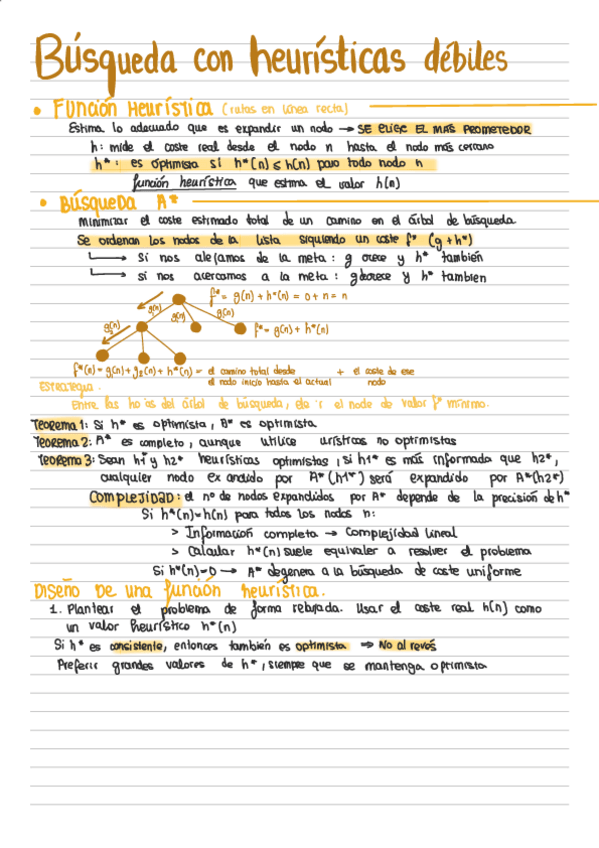 Búsqueda con heurísticas débiles
• FUNCIÓN HEURÍSTICA (rutas en línea recta)
Estima lo adecuado que es expandir un nodo → SE ELIGE EL MÁS PROMETEDOR
h: mide el coste real desde el nodo n hasta el nodo más cercano
h*: es optimista si h*(n) ≤ h(n) para todo nodo n
función heurística que estima el valor h(n)
• BÚSQUEDA A*
Minimizar el coste estimado total de un camino en el árbol de búsqueda
Se ordenan los nodos de la lista siguiendo un coste f* (g+h*)
→ Si nos alejamos de la meta: g crece y h* también
→ si nos acercamos a la meta: g decrece y h* tambien
f* = g(n) + h*(n) = 0 + n = n
g(n) g(n) g(n)
g2(n)
f* = g(n) + h*(n)
f*(n) = g(n) + g2(n) + h*(n) = el camino total desde + el coste de ese
el nodo inicio hasta el actual nodo
ESTRATEGIA.
Entre las ho as del árbol de búsqueda, ele ir el node de valor f* mínimo.
Teorema 1: Si h* es optimista, A* es optimista
Teorema 2: A* es completo, aunque utilice urísticas no optimistas
Teorema 3: Sean h1* y h2* heurísticas optimistas, si h1* es más informada que h2*,
cualquier nodo ex andido por A*(h1*) será expandido por A*(h2*)
COMPLEJIDAD: el nº de nodos expandidos por A* depende de la precisión de h*
Si h*(n)=h(n) para todos los nodos n:
> Información completa → Complejidad lineal
> Calcular h*(n) suele equivaler a resolver el problema
Si h*(n)=0 → A* degenera a la búsqueda de coste uniforme
DISEÑO DE UNA función heurística.
1. Plantear el problema de forma relajada. Usar el coste real h(n) como
un valor heurístico h*(n)
Si h* es consistente, entonces también es optimista ⇒ No al revés
Preferir grandes valores de h*, siempre que se mantenga optimista